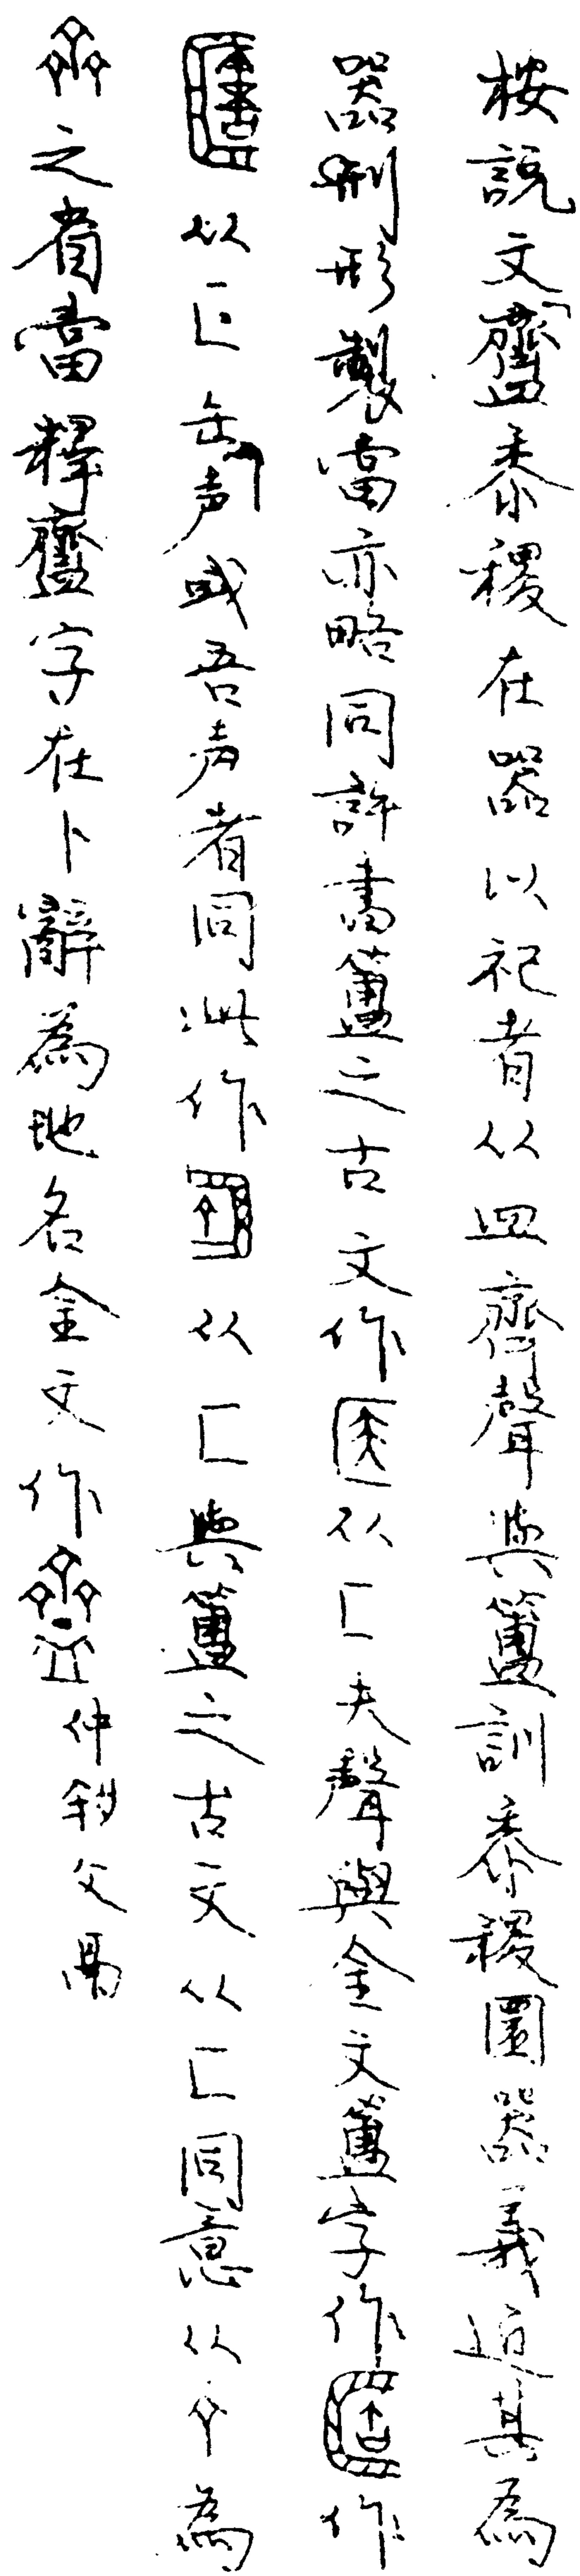 按說文齍黍稷在器以祀者从皿齊聲與簠訓黍稷圜器義近其為
器制形製當亦略同許書簠之古文作医从匚夫聲與金文簠字作作
从匚缶声或吾声者同此作从匚與簠之古文从匚同意从為
之省當釋齍字在卜辭為地名金文作仲父鬲